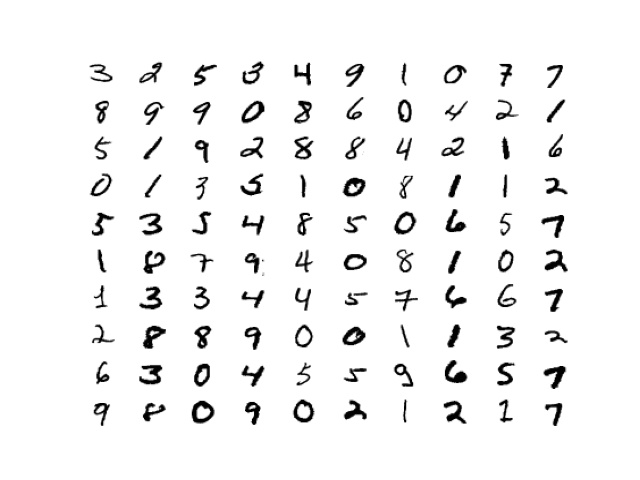 3 2 5 3 4 9 1 0 7 7
8 9 9 0 8 6 0 4 2 1
5 1 9 2 8 8 4 2 1 6
0 1 3 5 1 0 8 1 1 2
5 3 5 4 8 5 0 6 5 7
1 8 7 9 4 0 8 1 0 2
1 3 3 4 4 5 7 6 6 7
2 8 8 9 0 0 1 1 3 2
6 3 0 4 5 5 9 6 5 7
9 8 0 9 0 2 1 2 1 7